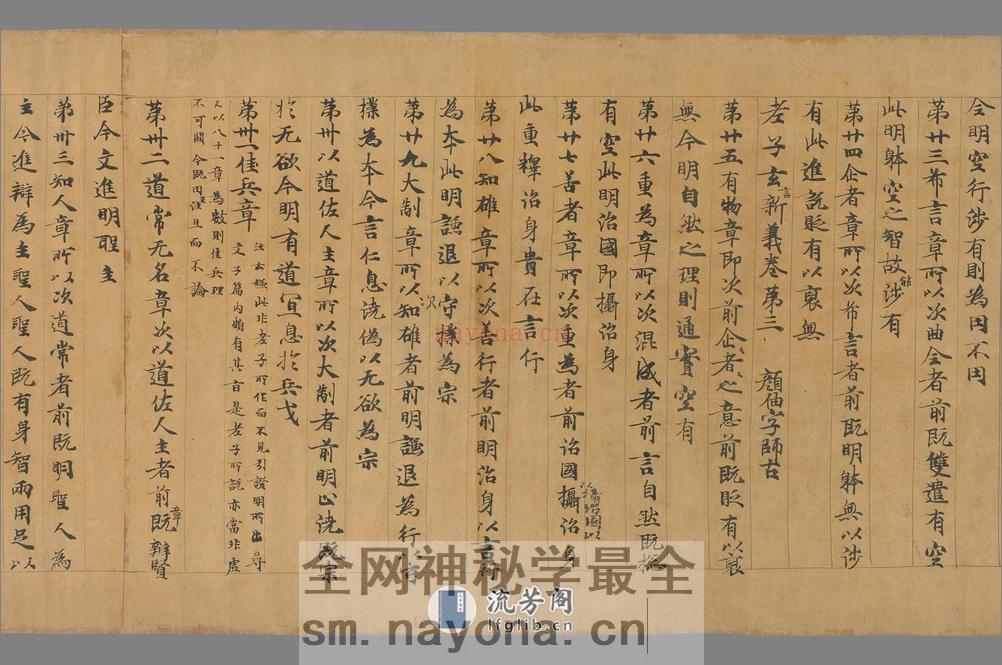 令明空行涉有則為因不因
第廿三布言章所以次曲全者前既雙遣有空
此明躰空之智故能涉有
第廿四企者章所以次布言者前既明躰無以涉
有此進說貶有以襃無
老子玄言新義卷第三 顏佃字師古
第廿五有物章即次前企者之意前既貶有以襃
無今明自然之理則通實空有
第廿六重為章所以次混成者前言自然既
有空此明治國即攝治身
第廿七善者章所以次重為者前治國攝治身
以攝治國以
此重釋治身貴在言行
第廿八知雄章所以次善行者前明治身以言行
為本此明謙退以守為宗
第廿九大制章所以次知雄者前明謙退為行以
為本今言仁息澆偽以无欲為宗
第卅以道佐人主章所以次大制者前明止澆既宗
於无欲今明有道宜息於兵戈
第卅一佳兵章 注云嫌此非老子所作自不見引證明所出尋
文子篇內頗有其旨是老子所說亦當非虛
又以八十一章為數則佳兵理
不可闕今既因注且而不論
第卅二道常无名章次以道佐人主章者前既辯賢
臣今文進明聖主
第卅三知人章所以次道常者前既明聖人為
主今進辯為主聖人聖人既有身智兩用足以
全网神秘学最全
sm.nayona.cn
流芳阁
lfglib.cn
nayona.cn